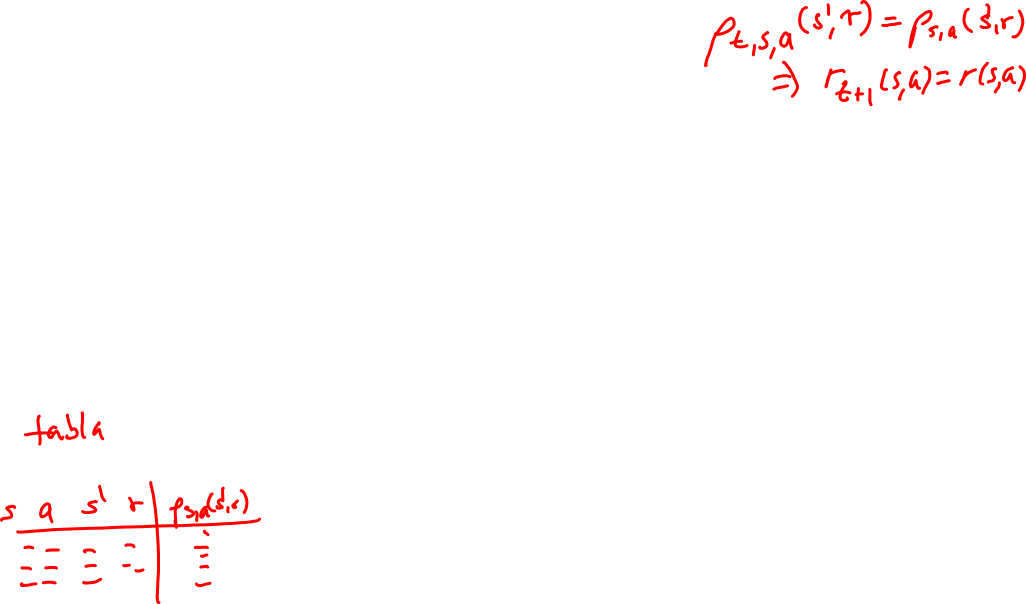 p_{t,s,a}(s',r) = p_{s,a}(s',r)
⇒ r_{t+1}(s,a) = r(s,a)
tabla
s a s' r | p_{s,a}(s',r)